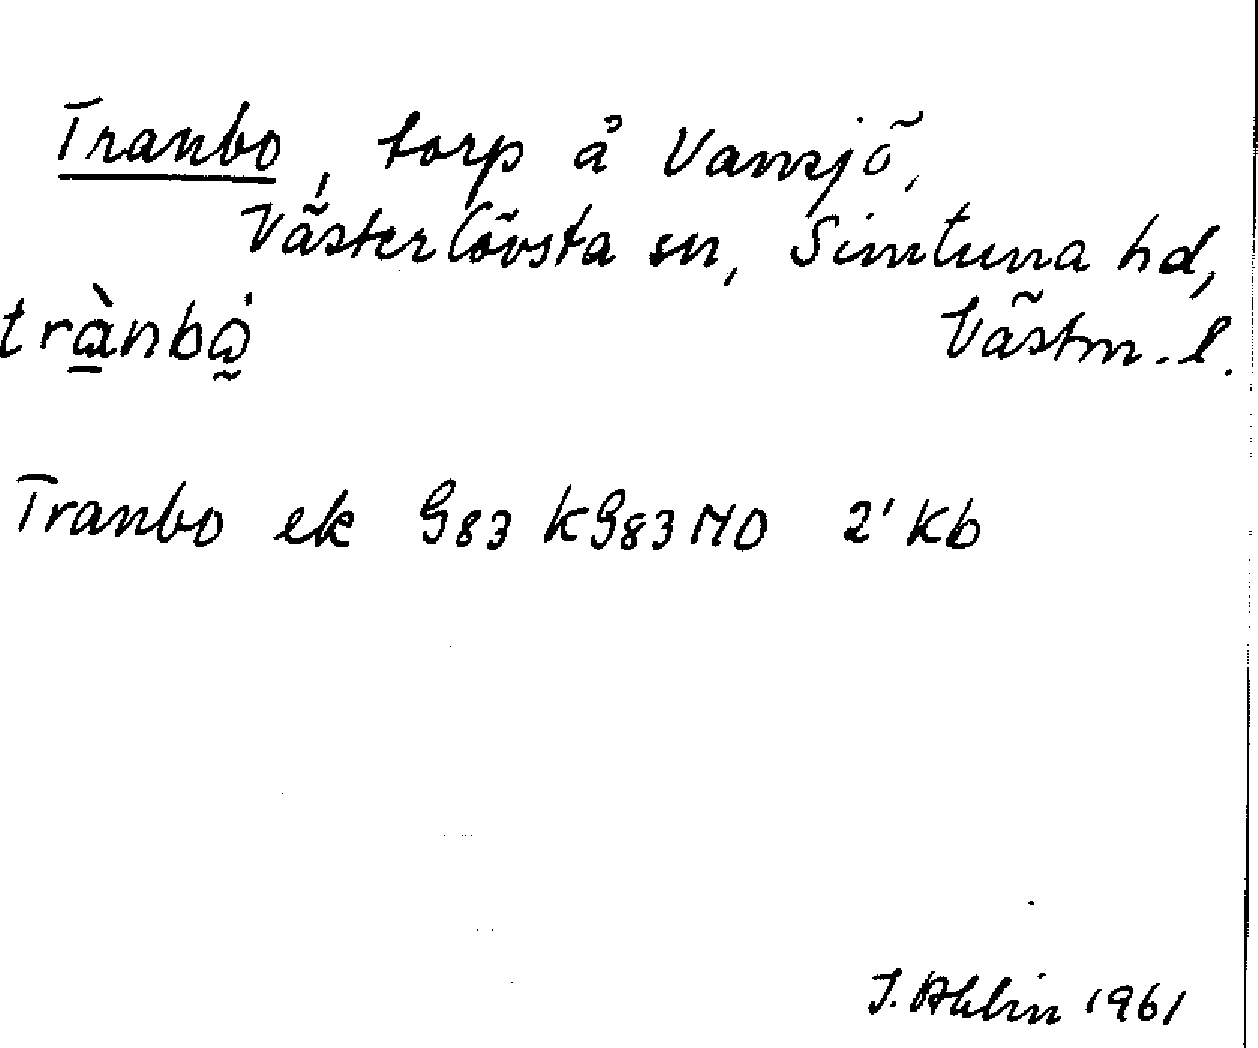 Tranbo, torp å Vansjö,
Västerlövsta sn, Simtuna hd,
Västm. l.
trànbo
Tranbo ek G83 KG83NO 2' Kb
J. Ahlin 1961